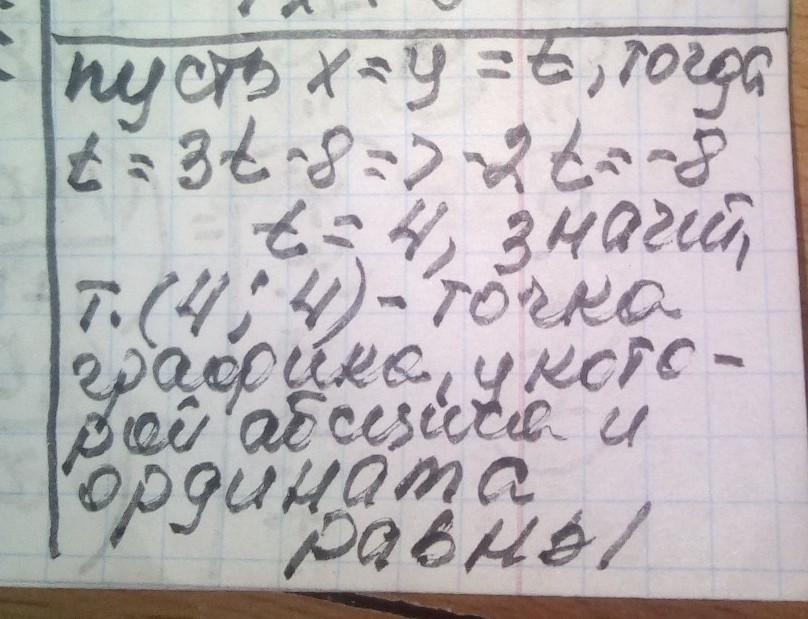 пусть x = y = t, тогда
t = 3t - 8 => -2t = -8
t = 4, значит,
т. (4; 4) - точка
графика, у кото-
рой абсцисса и
ордината
равны